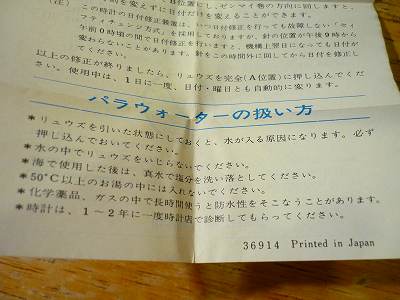 位置にし、ゼンマイ巻の方向に回しますと、
時刻を変えずに日付だけを変えることができます。
(注) この時計の日付修正装置は、いつ修正を行っても故障しない「セイ
フティチェンジ方式」を採用しておりますが、針の位置が午後9時から
午前0時頃の間で日付修正を行いますと、機構上翌日になっても日付が
変わらないことがあります。針をこの時間外に回してから日付を修正し
てください。
以上の修正が終りましたら、リュウズを完全(A位置)に押し込んでくだ
さい。使用中は、1日に一度、日付・曜日とも自動的に変ります。
パラウォーターの扱い方
*リュウズを引いた状態にしておくと、水が入る原因になります。必ず
押し込んでおいてください。
*水の中でリュウズをいじらないでください。
*海で使用した後は、真水で塩分を洗い落としてください。
*50℃以上のお湯の中には入れないでください。
*化学薬品、ガスの中で長時間使うと防水性をそこなうことがあります。
*時計は、1〜2年に一度時計店で診断してもらってください。
36914 Printed in Japan